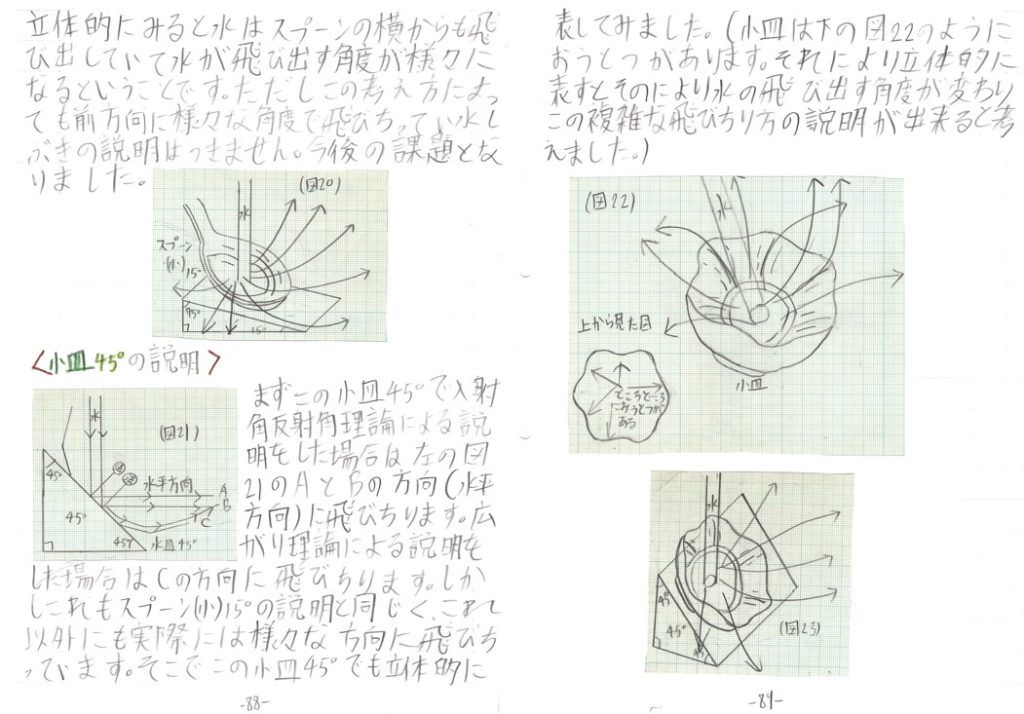 立体的にみると水はスプーンの横からも飛
び出していて水が飛び出す角度が様々に
なるということです。ただしこの考え方によっ
ても前方向に様々な角度で飛びちっている水し
ぶきの説明はつきません。今後の課題とな
りました。
(図20)
水
スプーン
(小)
15°
75°
15°
<小皿45°の説明>
(図21)
水
45°
水平方向
A
B
C
45°
45°
小皿45°
まずこの小皿45°で入射
角反射角理論による説
明をした場合は左の図
21のAとBの方向(水平
方向)に飛びちります。広
がり理論による説明を
した場合はCの方向に飛びちります。しか
しこれもスプーン(小)15°の説明と同じく、これ
以外にも実際には様々な方向に飛びち
っています。そこでこの小皿45°でも立体的に
-88-
表してみました。(小皿は下の図22のように
おうとつがあります。それにより立体的に
表すとそのにより水の飛び出す角度が変わり
この複雑な飛びちり方の説明が出来ると考
えました。)
(図22)
水
上から見た図
小皿
ところどころ
におうとつが
ある
水
45°
45°
45°
(図23)
-89-